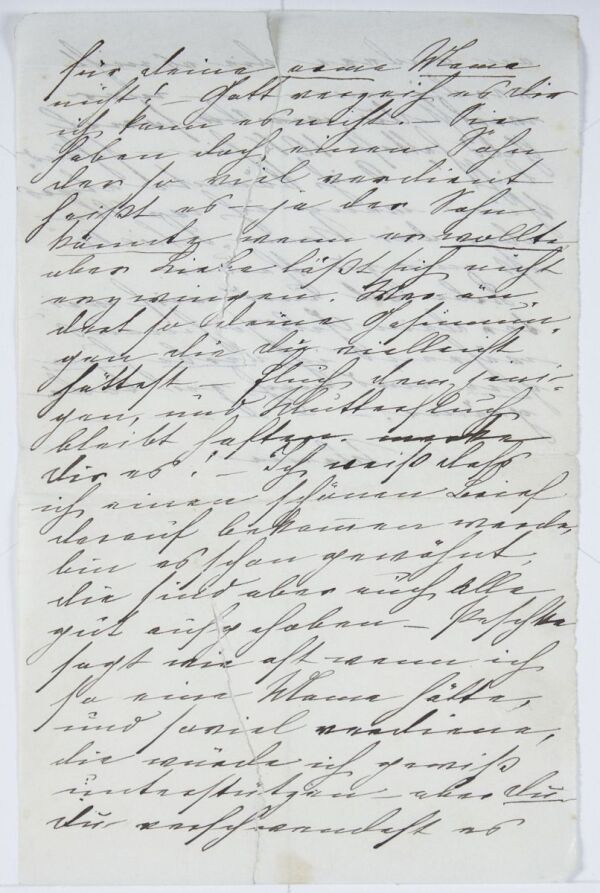 für deine arme Mama
nicht! – Gott verzeih es dir
ich kann es nicht. – Sie
haben doch einen Sohn
der so viel verdient
heißt es – ja der Sohn
könnte wenn er wollte
aber Liebe läßt sich nicht
erzwingen. Wer än¬
dert so deine Gesinnun¬
gen die du vielleicht
hättest – Fluch dem¬jeni¬
gen, und Mutterfluch
bleibt haften. merke
dir es! – Ich weiß daß
ich einen schönen Brief
darauf bekommen werde,
bin es schon gewöhnt,
die sind aber auch alle
gut aufgehoben –
sagt wie oft wenn ich
so eine Mama hätte,
und soviel verdiene,
die würde ich gewiß
unterstützen – aber du
du verschwendest es